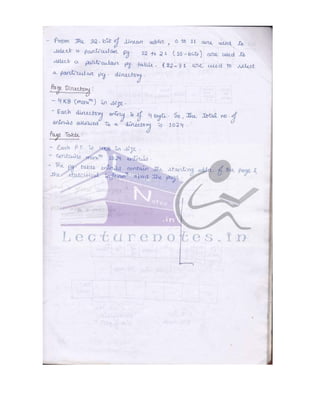 - From the 32-bit of linear addr, 0 to 11 are used to
select a particular pg. 12 to 21 (10-bits) are used to
select a particular pg table. (22-31 are used to select
a particular pg. directory.
Page Directory:
- 4 KB (maxm) in size.
- Each directory entry is of 4 byte. So, the total no of
entries allowed in a directory is 1024.
Page Table:
- Each P.T. is 4KB in size.
- Contains maxm 1024 entries.
- The pg table entries contain the starting addr of the page &
the statistical inform about the page.
Notes
.in
Lecturenotes.in